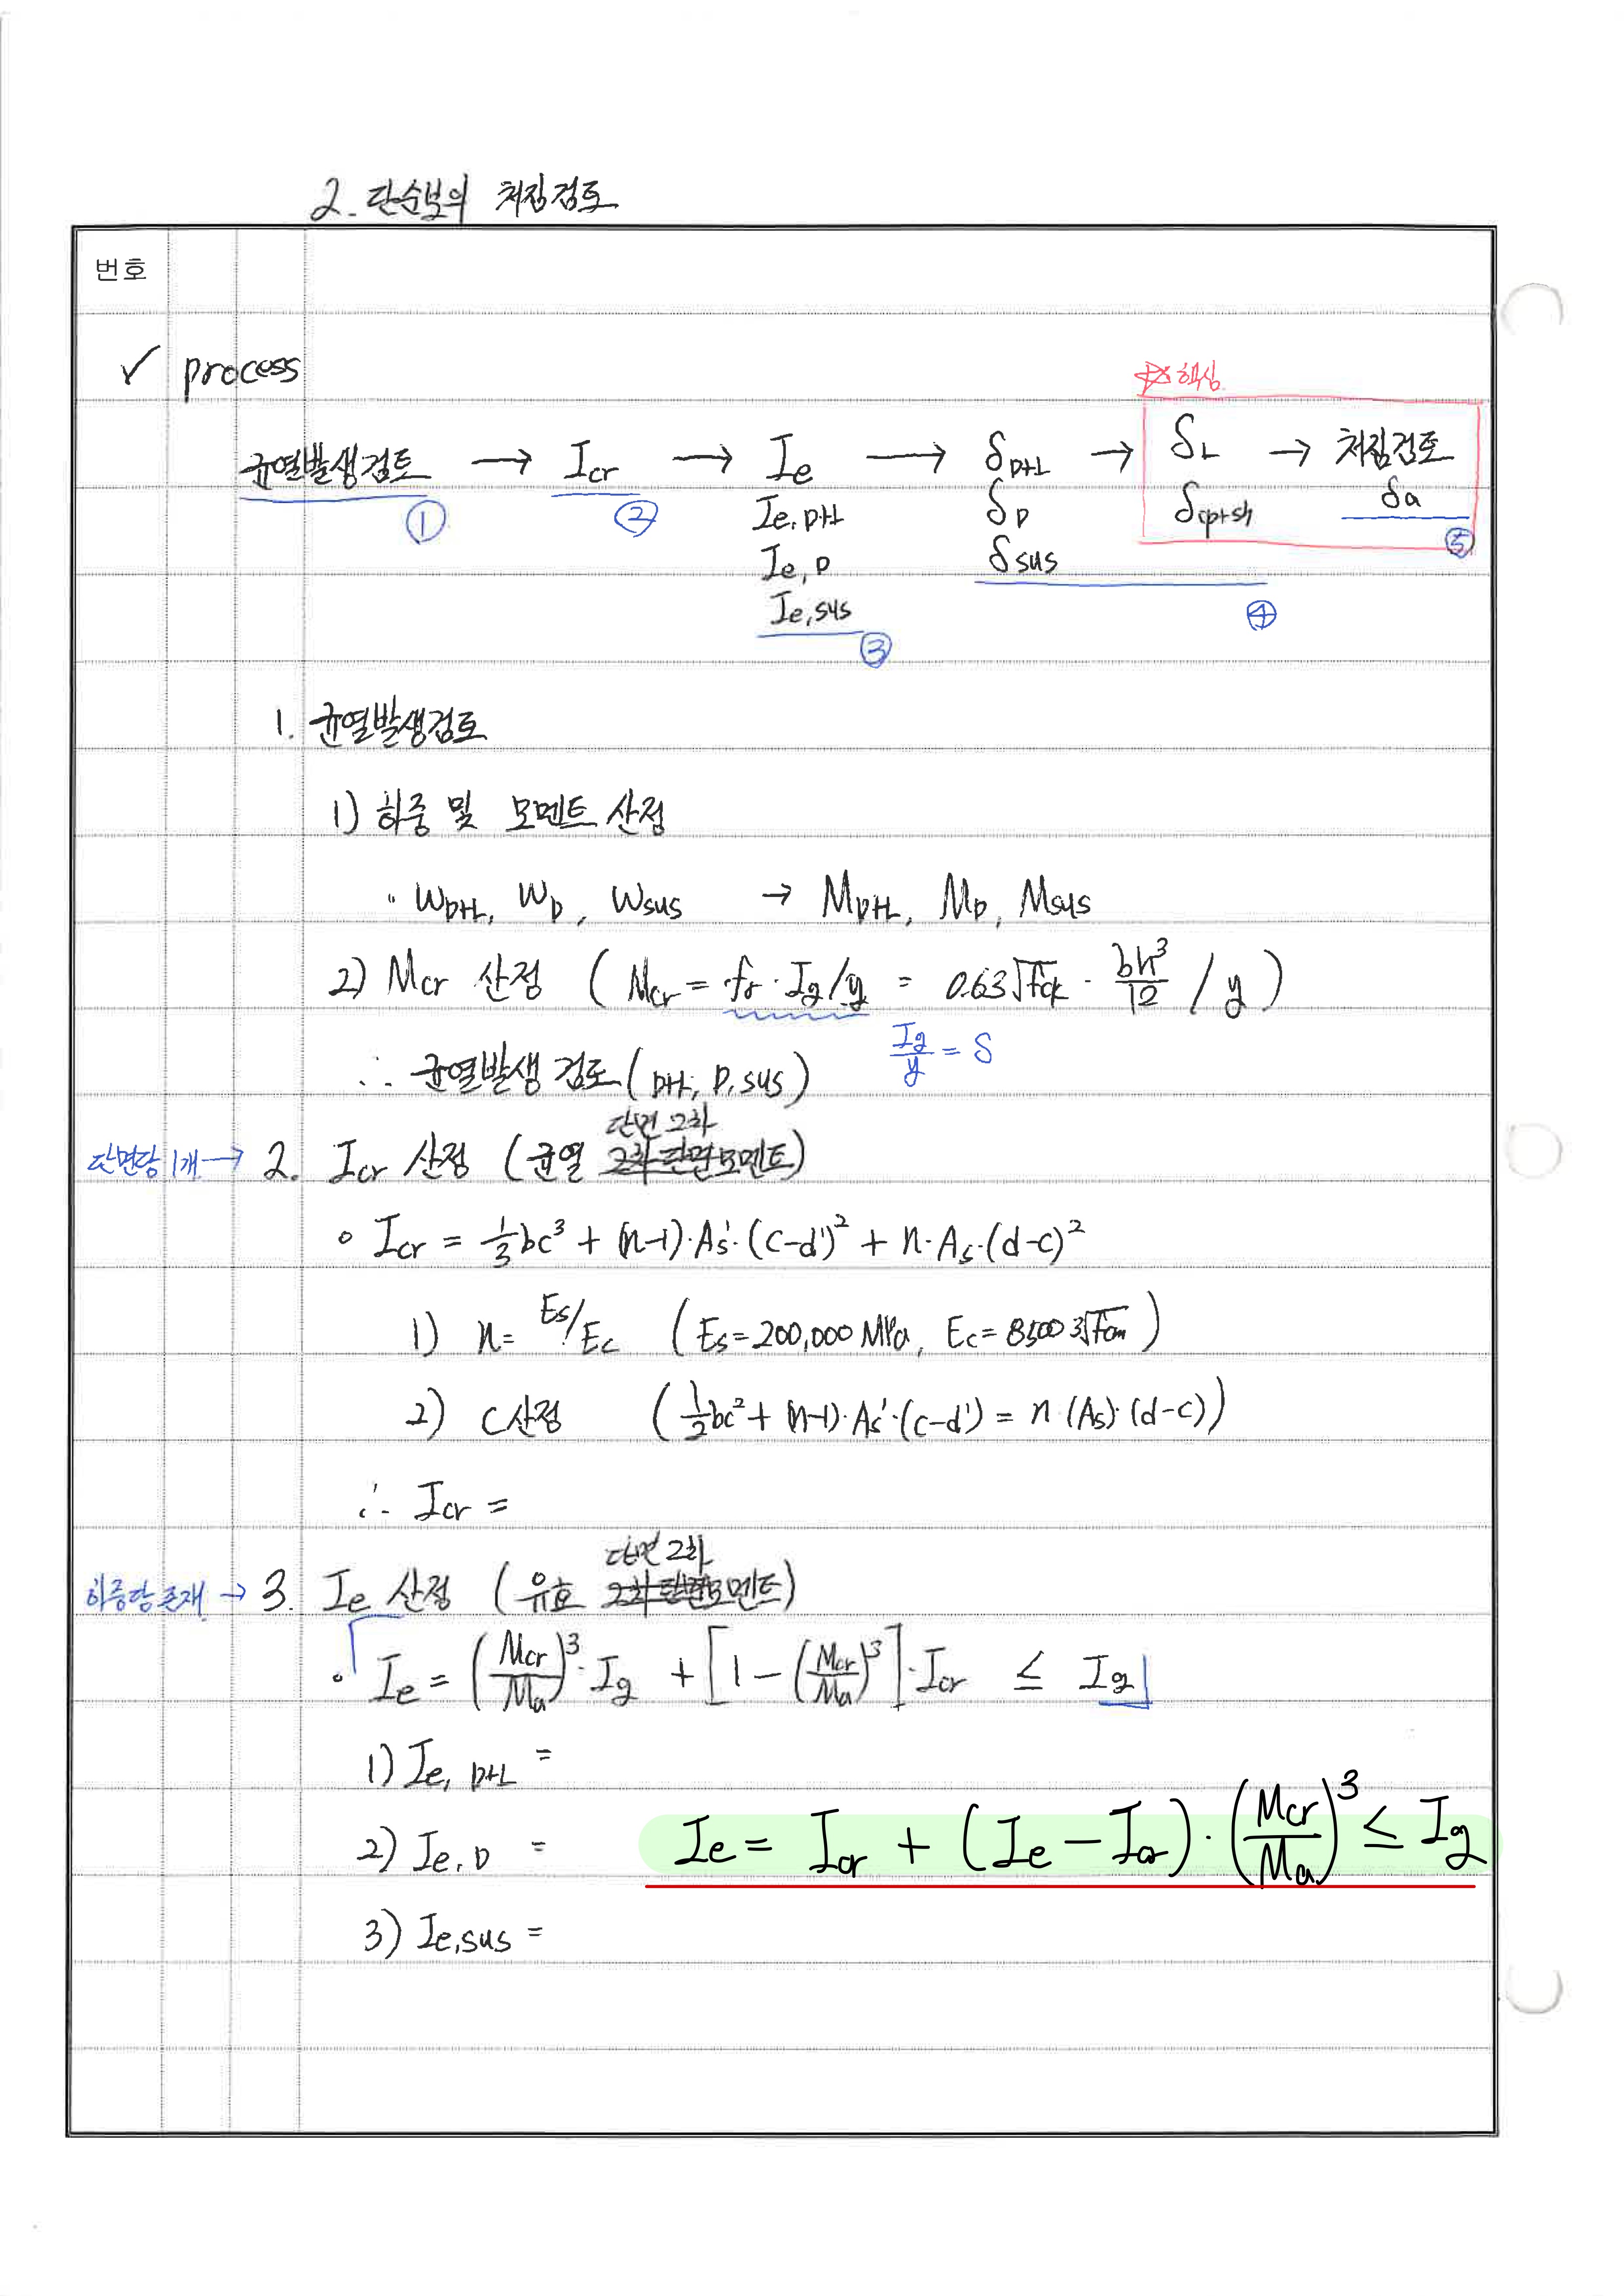 2. 단순보의 처짐검토
번호
✓ process
☆핵심
균열발생검토 → Icr → Ie → δD+L → δL → 처짐검토
① ② Ie, D+L δD δcp+sh δa ⑤
Ie, D δsus
Ie, sus ④
③
1. 균열발생검토
1) 하중 및 모멘트 산정
∘ WD+L, WD, Wsus → MD+L, MD, Msus
2) Mcr 산정 (Mcr = fr · Ig/y = 0.63√fck · bh³/12 / y)
Ig/y = S
∴ 균열발생 검토 (D+L, D, sus)
단면 2차
단면당 1개 → 2. Icr 산정 (균열 2차 단면모멘트)
∘ Icr = 1/3 bc³ + (n-1)·As'·(c-d')² + n·As·(d-c)²
1) n = Es/Ec (Es = 200,000 MPa, Ec = 8500 ³√fcm)
2) C 산정 (1/2 bc² + (n-1)·As'·(c-d') = n·(As)·(d-c))
∴ Icr =
단면 2차
하중당 존재 → 3. Ie 산정 (유효 2차 단면모멘트)
∘ Ie = (Mcr/Ma)³·Ig + [1 - (Mcr/Ma)³]·Icr ≤ Ig
1) Ie, D+L =
2) Ie, D = Ie = Icr + (Ie - Icr)·(Mcr/Ma)³ ≤ Ig
3) Ie, sus =